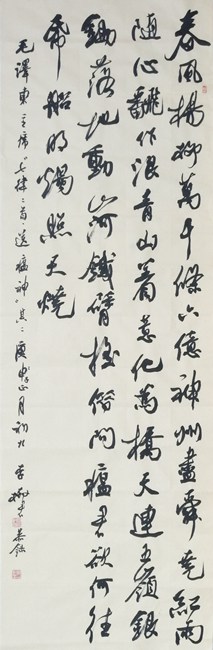 春風楊柳萬千條六億神州盡舜堯紅雨
隨心翻作浪青山着意化為橋天連五嶺銀
鋤落地動山河鐵臂搖借問瘟君欲何往
紙船明燭照天燒
毛澤東主席七律二首送瘟神其二庚申正月初九李